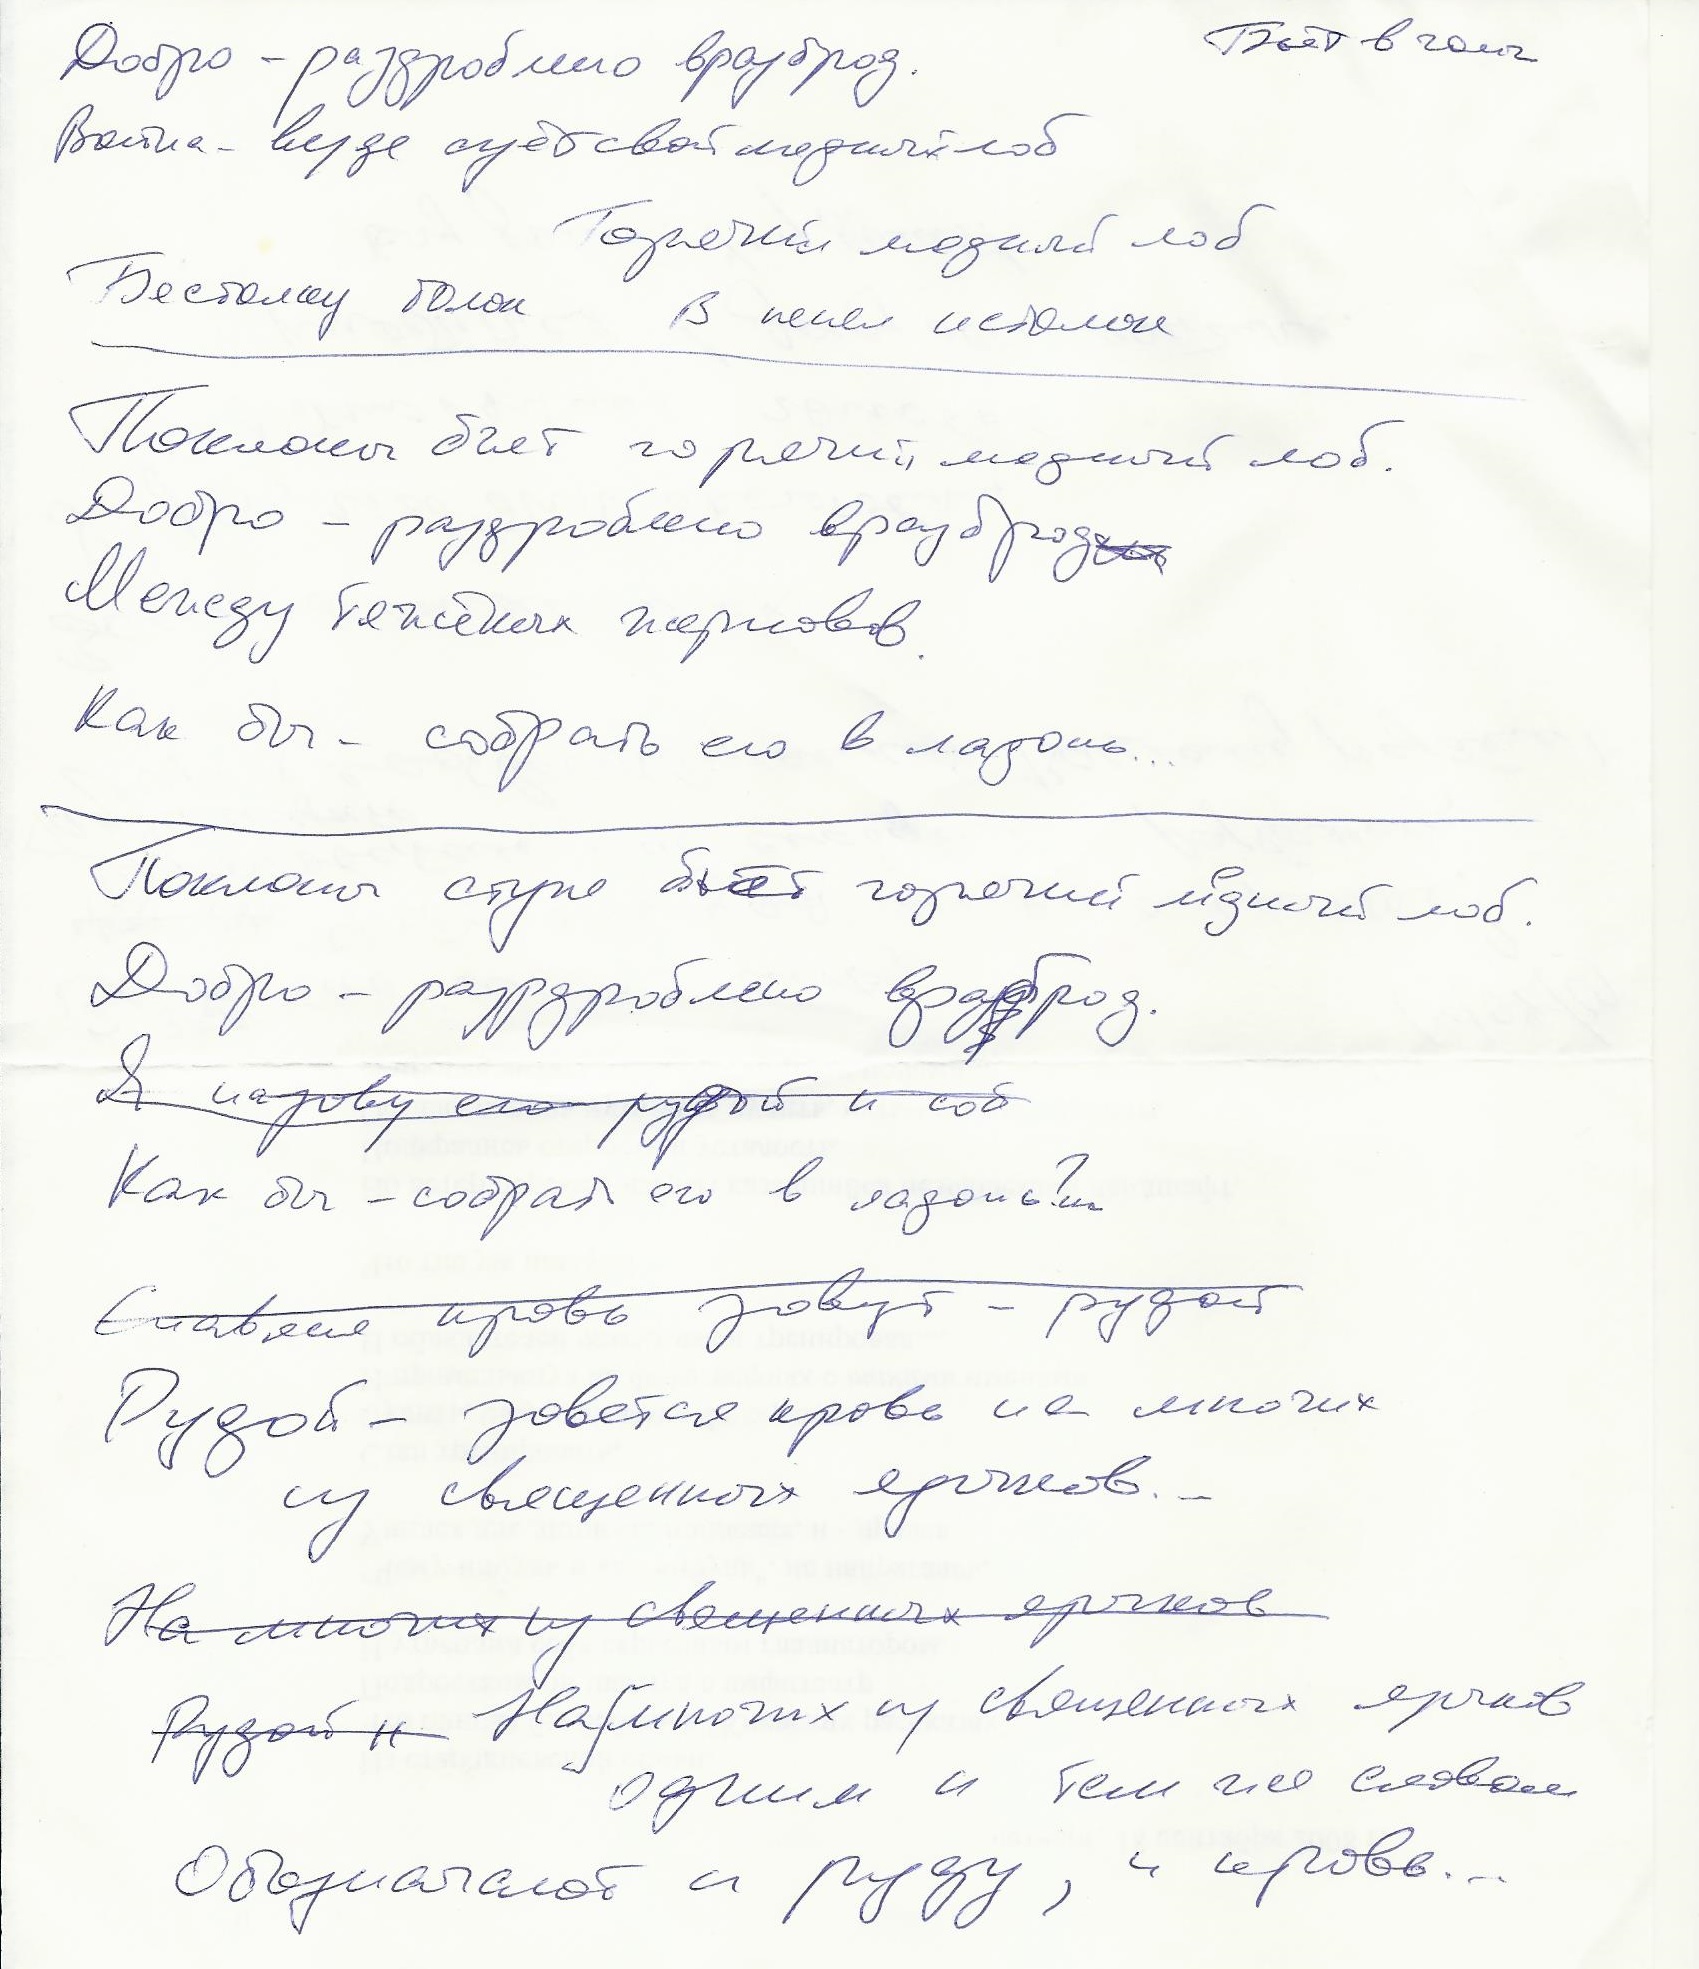 Добро – раздроблено вразброд.
Бьёт в
Война – везде суёт свой медный лоб
Горячий медный лоб
Бестолку толок
В пепел истолок
Поклоны бьет горячий медный лоб.
Добро – раздроблено вразброд
Между тяжёлых жерновов.
Как бы – собрать его в ладонь...
Поклоны ступе бьёт горячий медный лоб.
Добро – раздроблено вразброд.
Я назову его рудой и
Как бы – собрать его в ладонь?..
Славяне кровь зовут – рудой
Рудой – зовется кровь на многих
из священных языков...
На многих из священных языков
Рудой и На многих из священных языков
одним и тем же словом
Обозначают и руду, и кровь...